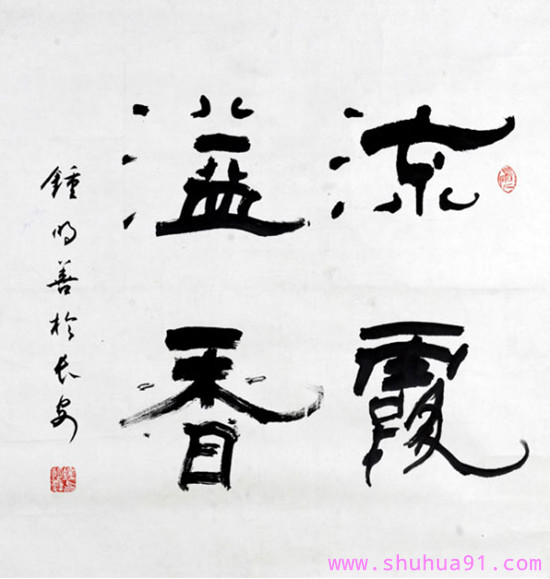 流霞
溢香
鍾明善於長安
www.shuhua91.com